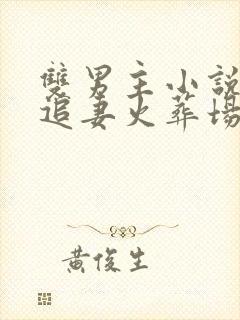 雙男主小說
追妻火葬場
黃俊生